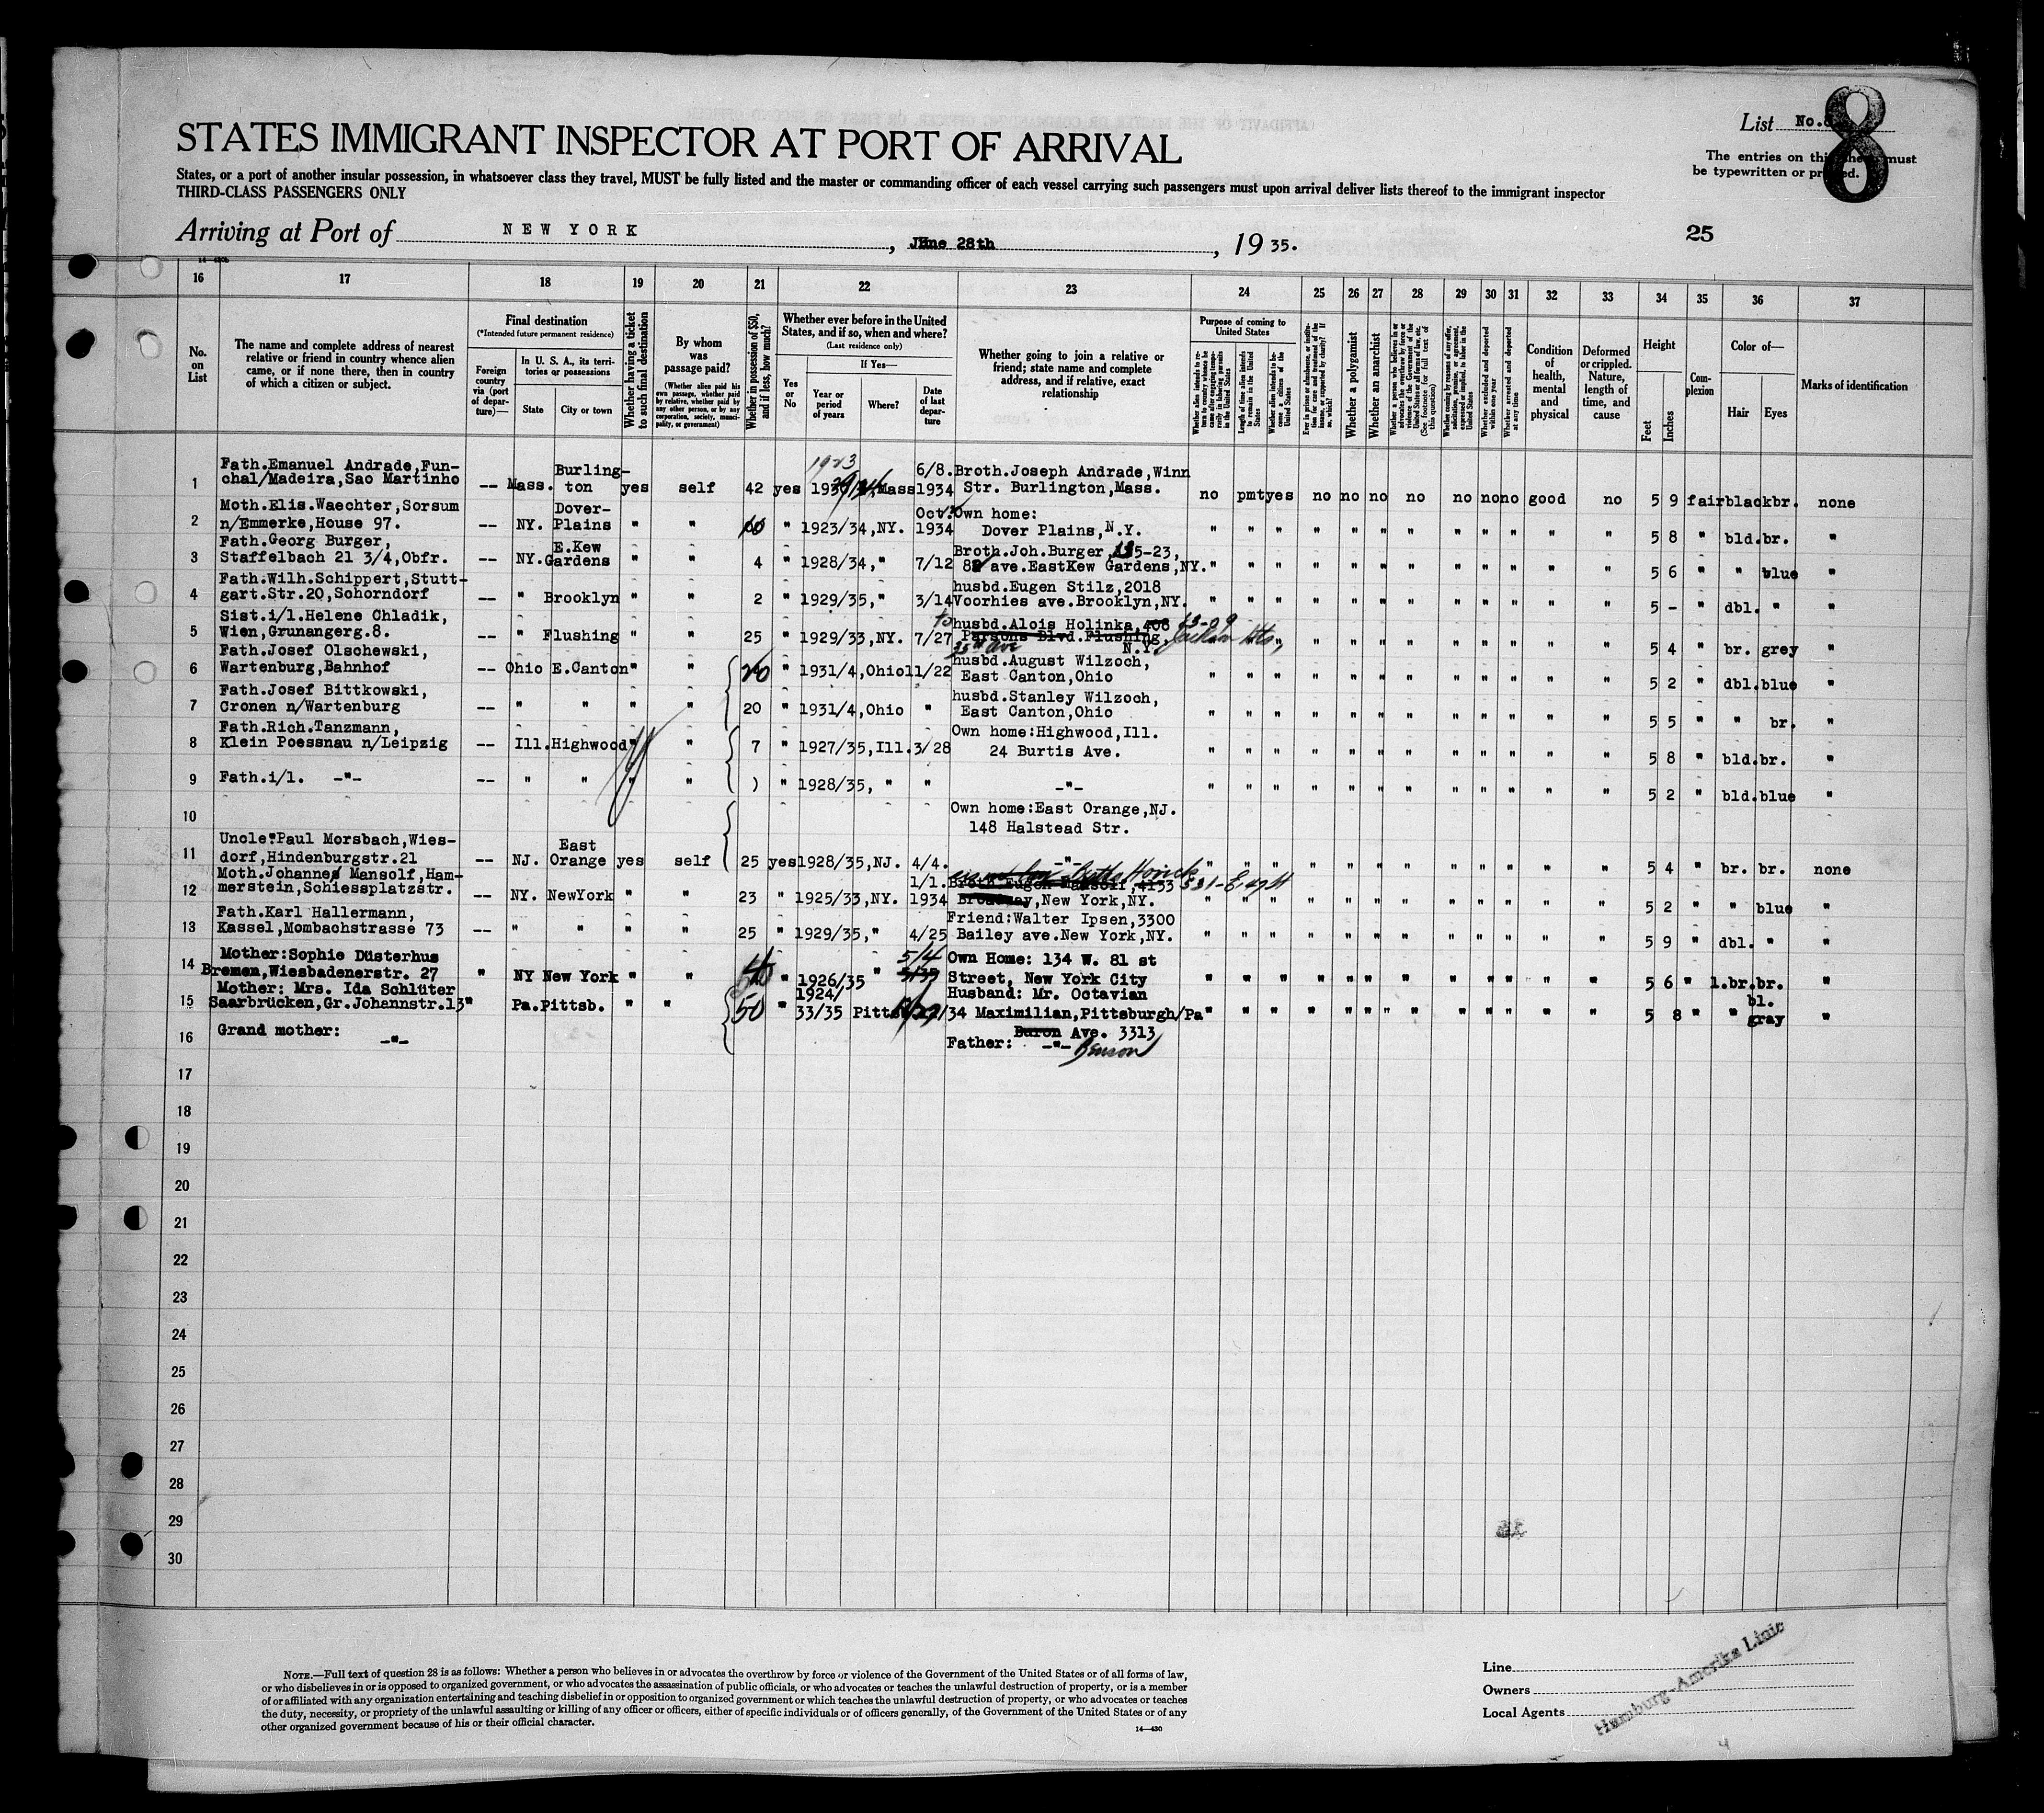 STATES IMMIGRANT INSPECTOR AT PORT OF ARRIVAL
List No. 8
The entries on this sheet must
be typewritten or printed.
States, or a port of another insular possession, in whatsoever class they travel, MUST be fully listed and the master or commanding officer of each vessel carrying such passengers must upon arrival deliver lists thereof to the immigrant inspector
THIRD-CLASS PASSENGERS ONLY
Arriving at Port of NEW YORK, June 28th, 1935.
25
16 17 18 19 20 21 22 23 24 25 26 27 28 29 30 31 32 33 34 35 36 37
No. on List
The name and complete address of nearest relative or friend in country whence alien came, or if none there, then in country of which a citizen or subject.
Final destination
(*Intended future permanent residence)
Foreign country via (port of departure)—
In U. S. A., its territories or possessions
State
City or town
Whether having a ticket to such final destination
By whom was passage paid?
(Whether alien paid his own passage, whether paid by relative, whether paid by any other person, or by any corporation, society, municipality, or government)
Whether in possession of $50, and if less, how much?
Whether ever before in the United States, and if so, when and where?
(Last residence only)
Yes or No
If Yes—
Year or period of years
Where?
Date of last departure
Whether going to join a relative or friend; state name and complete address, and if relative, exact relationship
Purpose of coming to United States
Length of time alien intends to remain in the United States
Whether alien intends to become a citizen of the United States
Whether a polygamist
Whether an anarchist
(See footnote for full text of this question)
Whether excluded and deported within one year
Whether arrested and deported at any time
Condition of health, mental and physical
Deformed or crippled. Nature, length of time, and cause
Height
Feet
Inches
Complexion
Color of—
Hair
Eyes
Marks of identification
1 Fath.Emanuel Andrade,Fun-
chal/Madeira,Sao Martinho -- Mass. Burling-
ton yes self 42 yes 1923 Mass 6/8. 1934 Broth.Joseph Andrade,Winn
Str. Burlington,Mass. no pmt yes no no no no no no no good no 5 9 fair black br. none
2 Moth.Elis.Waechter,Sorsum
n/Emmerke,House 97. -- NY. Dover-
Plains " " " 1923/34,NY. Oct. 1934 Own home:
Dover Plains,N.Y. " " " " " " " " " " " " 5 8 " bld. br. "
3 Fath.Georg Burger,
Staffelbach 21 3/4,Obfr. -- NY. E.Kew
Gardens " " 4 " 1928/34," 7/12 Broth.Joh.Burger, 5-23,
ave.EastKew Gardens,NY. " " " " " " " " " " " " 5 6 " " blue "
4 Fath.Wilh.Schippert,Stutt-
gart.Str.20,Schorndorf -- " Brooklyn " " 2 " 1929/35," 3/14 husbd.Eugen Stilz,2018
Voorhies ave.Brooklyn,NY. " " " " " " " " " " " " 5 - " dbl. " "
5 Sist.i/l.Helene Chladik,
Wien,Grunangerg.8. -- " Flushing " " 25 " 1929/33,NY. 7/27 husbd.Alois Holinka,408 83-09
Parsons Blvd.Flushing, Jackson Hts.,
35th Ave N.Y. " " " " " " " " " " " 5 4 " br. grey "
6 Fath.Josef Olschewski,
Wartenburg,Bahnhof -- Ohio E.Canton " " " 1931/4,Ohio 11/22 husbd.August Wilzoch,
East Canton,Ohio " " " " " " " " " " " " 5 2 " dbl. blue "
7 Fath.Josef Bittkowski,
Cronen n/Wartenburg -- " " " " 20 " 1931/4,Ohio " husbd.Stanley Wilzoch,
East Canton,Ohio " " " " " " " " " " " " 5 5 " " br. "
8 Fath.Rich.Tanzmann,
Klein Poessnau n/Leipzig -- Ill. Highwood " " 7 " 1927/35,Ill. 3/28 Own home:Highwood,Ill.
24 Burtis Ave. " " " " " " " " " " " " 5 8 " bld. br. "
9 Fath.i/l. -"- -- " " " " ) " 1928/35, " " -"- " " " " " " " " " " " " 5 2 " bld. blue "
10 Own home:East Orange,NJ.
148 Halstead Str.
11 Uncle:Paul Morsbach,Wies-
dorf,Hindenburgstr.21 -- NJ. East
Orange yes self 25 yes 1928/35,NJ. 4/4. -"- " " " " " " " " " " " " 5 4 " br. br. none
12 Moth.Johanne Mansolf,Ham-
merstein,Schiessplatzstr. -- NY. NewYork " " 23 " 1925/33,NY. 1/1. 1934 Broth.Eugen Mansolf,4133 531-E.
Broadway,New York,NY. " " " " " " " " " " " " 5 2 " " blue "
13 Fath.Karl Hallermann,
Kassel,Mombachstrasse 73 -- " " " " 25 " 1929/35," 4/25 Friend:Walter Ipsen,3300
Bailey ave.New York,NY. " " " " " " " " " " " " 5 9 " dbl. " "
14 Mother:Sophie Düsterhus
Bremen,Wiesbadenerstr. 27 " NY New York " " " 1926/35 " 5/4 Own Home: 134 W. 81 st
Street, New York City " " " " " " " " " " " " 5 6 " l.br. br. "
15 Mother: Mrs. Ida Schlüter
Saarbrücken,Gr.Johannstr.13 " Pa. Pittsb. " " 50 " 1924/
33/35 Pittsb. Husband: Mr. Octavian
Maximilian,Pittsburgh/Pa " " " " " " " " " " " " 5 8 " " bl.
gray "
Buron Ave. 3313
16 Grand mother: -"- Father: -"- Benson
17
18
19
20
21
22
23
24
25
26
27
28
29
30
NOTE.—Full text of question 28 is as follows: Whether a person who believes in or advocates the overthrow by force or violence of the Government of the United States or of all forms of law,
or who disbelieves in or is opposed to organized government, or who advocates the assassination of public officials, or who advocates or teaches the unlawful destruction of property, or is a member
of or affiliated with any organization entertaining and teaching disbelief in or opposition to organized government or which teaches the unlawful destruction of property, or who advocates or teaches
the duty, necessity, or propriety of the unlawful assaulting or killing of any officer or officers, either of specific individuals or of officers generally, of the Government of the United States or of any
other organized government because of his or their official character.
14—430
Line
Owners
Local Agents
Hamburg-Amerika Linie